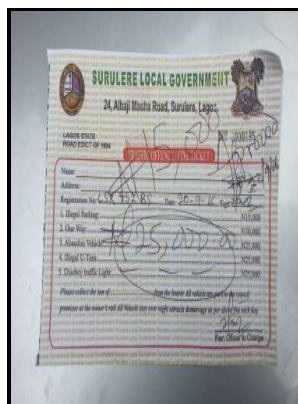 SURULERE LOCAL GOVERNMENT
24, Alhaji Masha Road, Surulere, Lagos
LAGOS STATE
ROAD EDICT OF 1994
TRAFFIC OFFENCE FINE TICKET
₦15,000
Name:
Address:
Registration No: Date: 20-9-16
1. Illegal Parking: N15,000
2. One Way: N30,000
3. Abandon Vehicle: N25,000
4. Illegal U-Turn: N25,000
5. Disobey traffic Light: N25,000
₦25,000
Please collect the sum of from the bearer All vehicle are park in the council
premises at the owner's risk All Vehicle stays over night attracts demurrage as per above fine each day
For: Officer in Charge